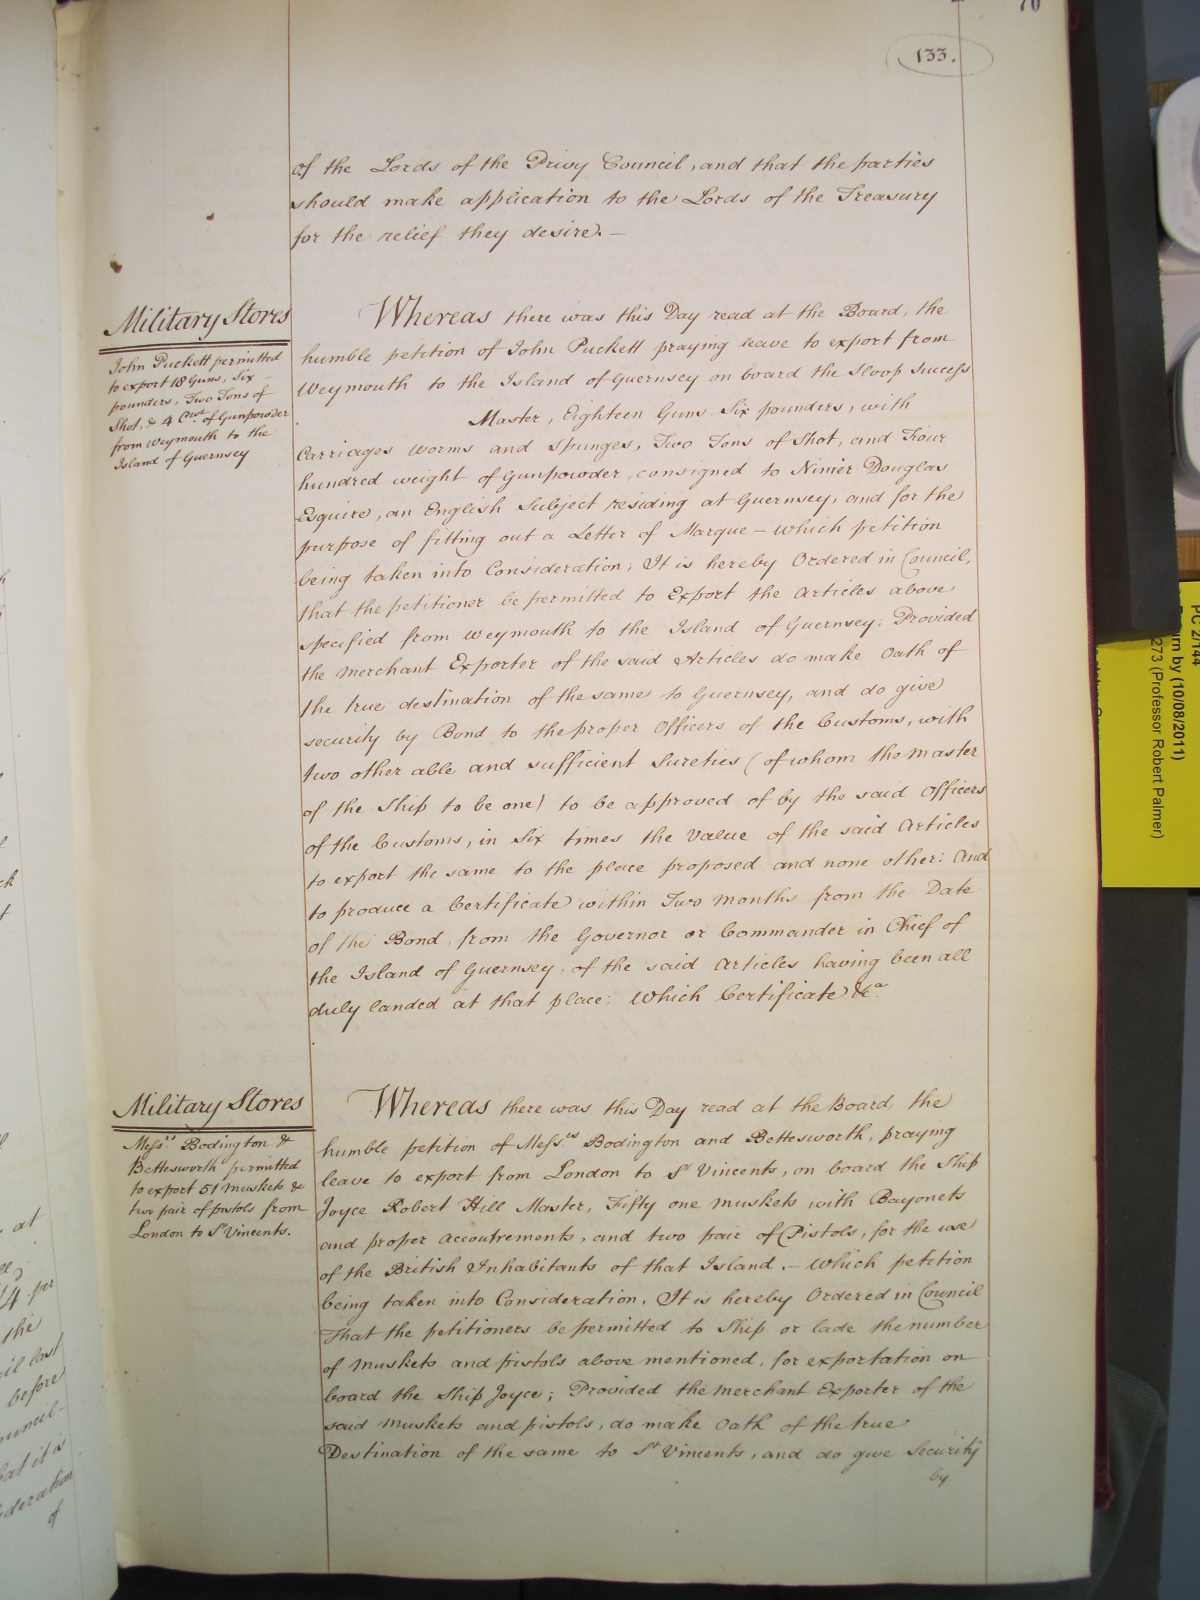 70
133.
of the Lords of the Privy Council, and that the parties
should make application to the Lords of the Treasury
for the relief they desire. —
Military Stores
John Puckett permitted
to export 18 Guns, Six
pounders, Two Tons of
Shot, & 4 Cwt. of Gunpowder
from Weymouth to the
Island of Guernsey
Whereas there was this Day read at the Board, the
humble petition of John Puckett praying leave to export from
Weymouth to the Island of Guernsey on board the Sloop Success
Master, Eighteen Guns Six pounders, with
Carriages worms and spunges, Two Tons of Shot, and Four
hundred weight of Gunpowder, consigned to Ninier Douglas
Esquire, an English Subject residing at Guernsey, and for the
purpose of fitting out a Letter of Marque — which petition
being taken into Consideration, It is hereby Ordered in Council,
that the petitioner be permitted to Export the Articles above
specified from Weymouth to the Island of Guernsey: Provided
the merchant Exporter of the said Articles do make Oath of
the true destination of the same to Guernsey, and do give
security by Bond to the proper Officers of the Customs, with
two other able and sufficient Sureties (of whom the master
of the Ship to be one) to be approved of by the said Officers
of the Customs, in six times the Value of the said Articles
to export the same to the place proposed and none other: And
to produce a Certificate within Two months from the Date
of the Bond, from the Governor or Commander in Chief of
the Island of Guernsey, of the said Articles having been all
duly landed at that place: Which Certificate &ca.
Military Stores
Messrs Bodington &
Bettesworth permitted
to export 51 muskets &
two pair of pistols from
London to St Vincents.
Whereas there was this Day read at the Board, the
humble petition of Messrs Bodington and Bettesworth, praying
leave to export from London to St Vincents, on board the Ship
Joyce Robert Hill Master, Fifty one muskets with Bayonets
and proper accoutrements, and two pair of Pistols, for the use
of the British Inhabitants of that Island. — Which petition
being taken into Consideration, It is hereby Ordered in Council
That the petitioners be permitted to Ship or lade the number
of muskets and pistols above mentioned, for exportation on
board the Ship Joyce; Provided the merchant Exporter of the
said muskets and pistols, do make Oath of the true
Destination of the same to St Vincents, and do give Security
by
PC 2/144
urn by (10/08/2011)
273 (Professor Robert Palmer)
at
per
the
last
before
uncil-
hat it is
ideration
of